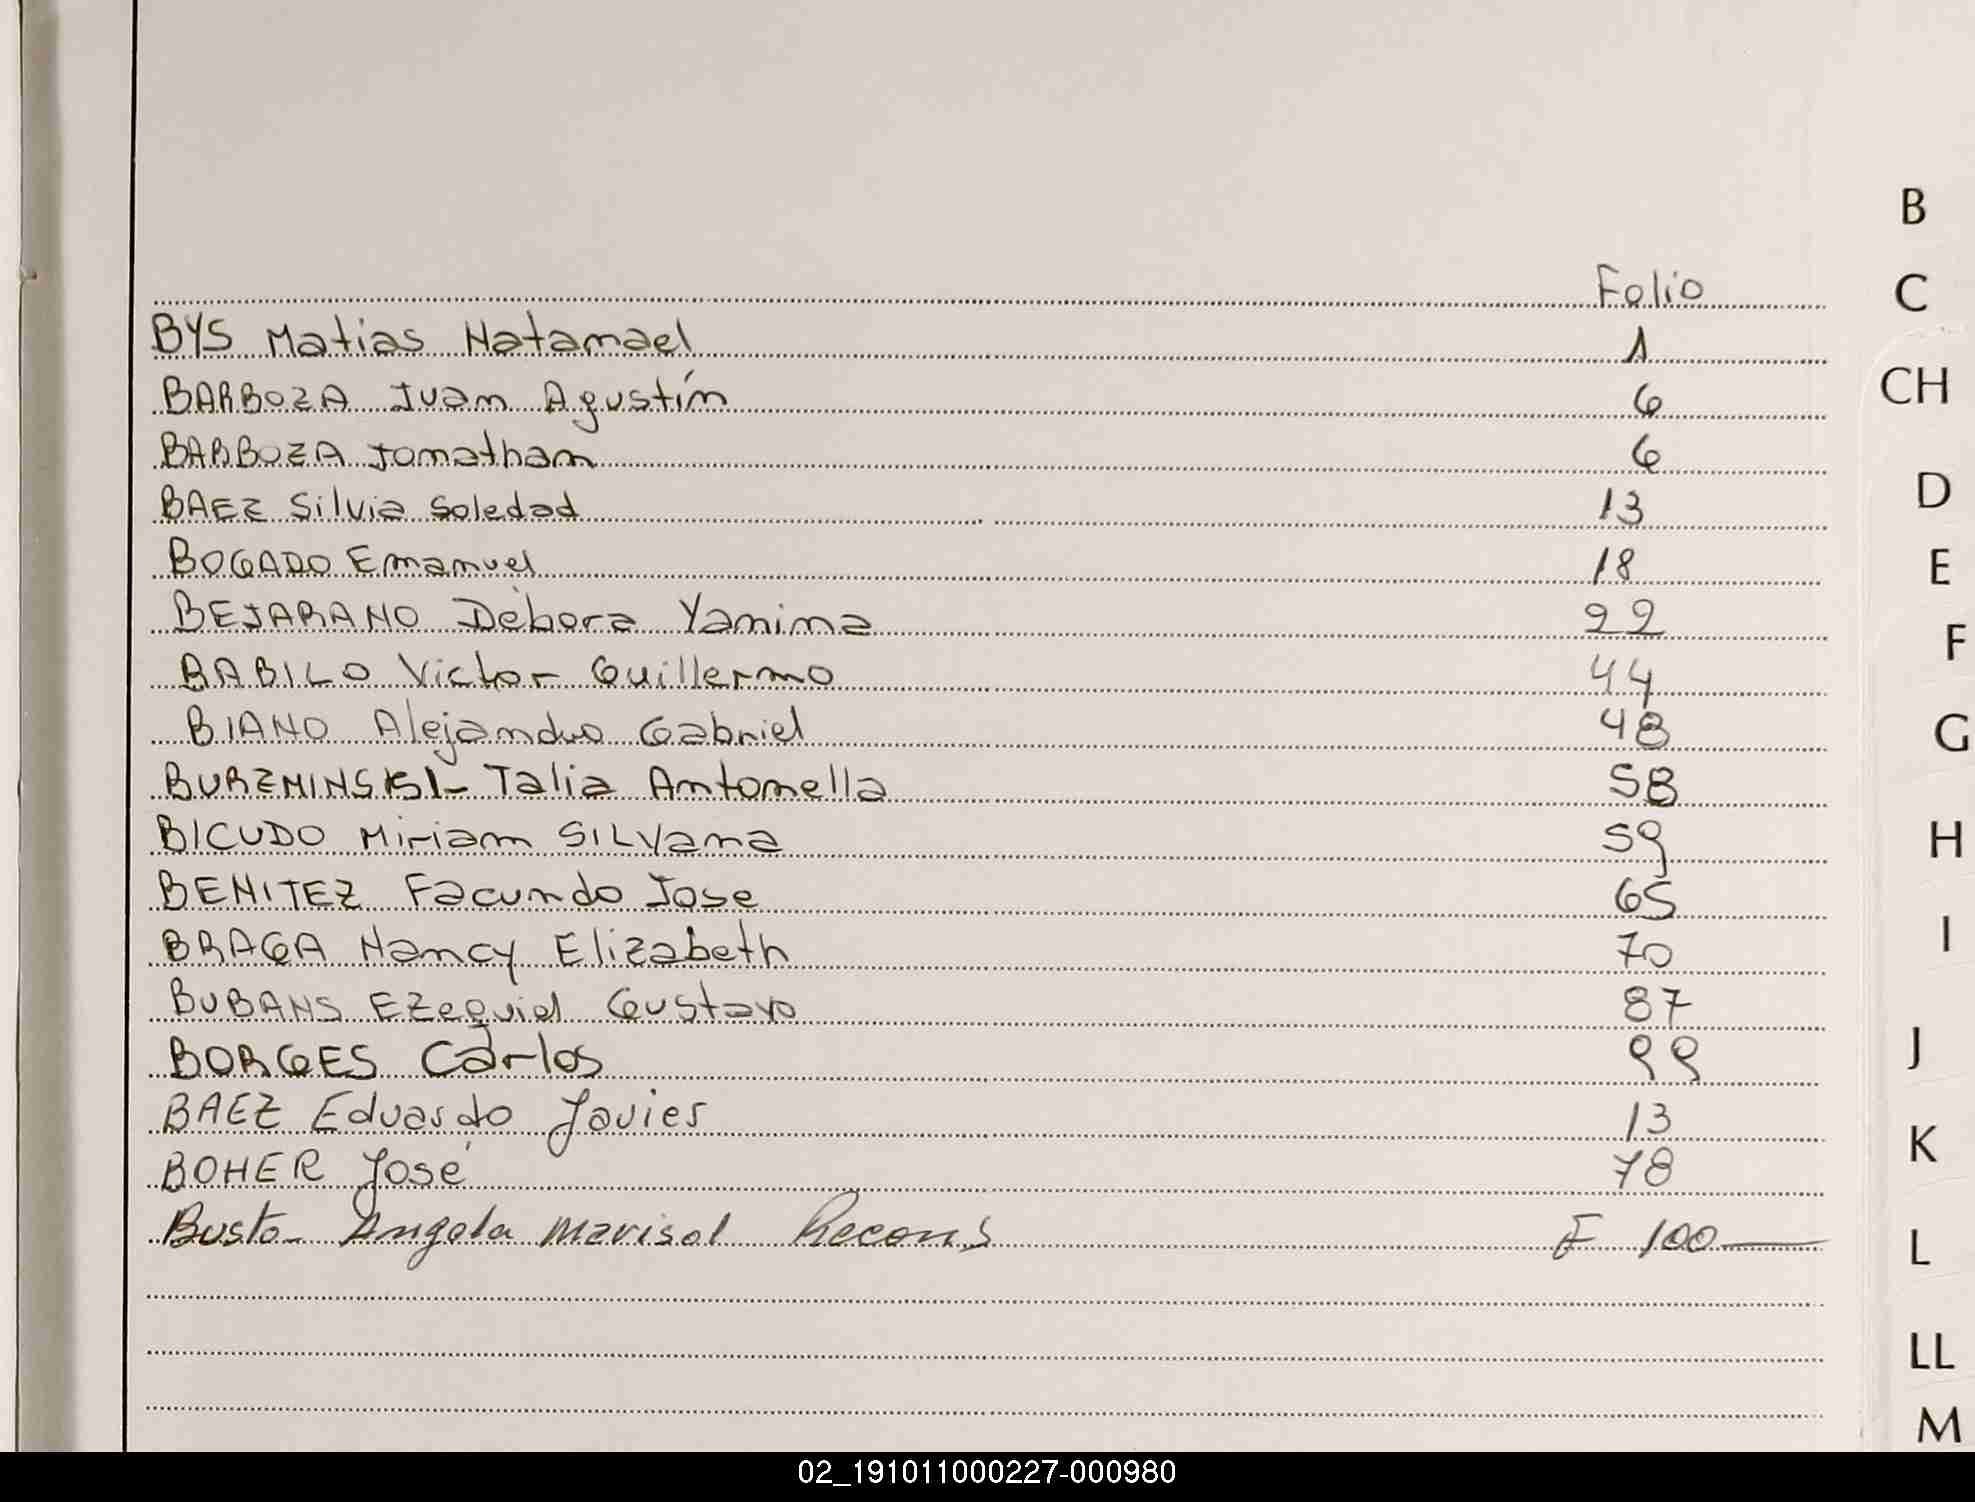 Folio
BYS Matias Natanael 1
BARBOZA Juan Agustín 6
BARBOZA Jonathan 6
BAEZ Silvia Soledad 13
BOGADO Emanuel 18
BEJARANO Débora Yanina 22
BABILO Victor Guillermo 44
BIANO Alejandro Gabriel 48
BURZMINSKI - Talia Antonella 58
BICUDO Miriam SILVana 59
BENITEZ Facundo Jose 65
BRAGA Nancy Elizabeth 70
BUBANS Ezequiel Gustavo 87
BORGES Carlos 99
BAEZ Eduardo Javier 13
BOHER José 78
Busto - Angela Marisol F 100
B
C
CH
D
E
F
G
H
I
J
K
L
LL
M
02_191011000227-000980